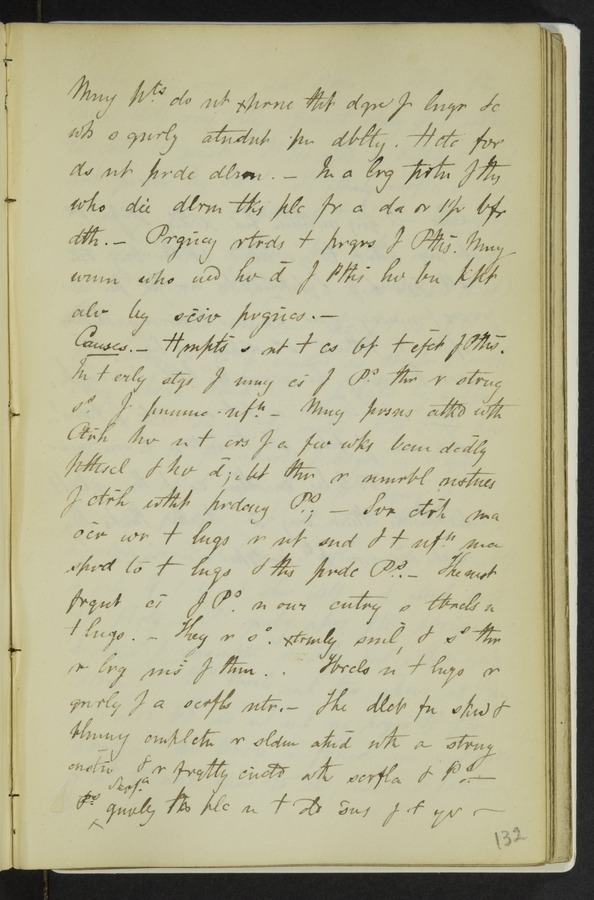 Mny pts do nt xprnc tht dgre f lngr &c
wh s gnrly atndnt pn dblty. Hctc fvr
ds nt prdc dlrm. — In a lrg prtn f ths
who die dlrm tks plc fr a da or 
dth. — Prgncy rtrds t prgrs f Pthis. Mny
wmn who wd hv d f Pthis hv bn kpt
alv by scsv prgncs. —
Causes. — Hmpts s nt t cs bt t efct f Pths.
In t erly stgs f mny cs f Po. thr r strng
so. f pnumc nfn — Mny prsns atkd wth
Ctrh hv n t crs f a few wks bcm ddly
pthiscl & hv d; bt thr r nmrbl nstncs
f ctrh wtht prdcng Po.; — Svr ctrh ma
ocr wr t lngs r nt snd & t nfn ma
sprd to t lngs & ths prdc Po. — The mst
frqnt cs f Po. n our cntry s tbrcls n
t lngs. — They r so. xtrmly sml, & so thr
r lrg ms f thm. . Tbrcls n t lngs r
gnrly f a scrfls ntr. — The dlct fr skn &
blmng cmplctn r sldm atnd wth a strng
cnsttn & r frqtly cnctd wth scrfla & Po. —
Scrfa
gnrly tks plc n t 
132